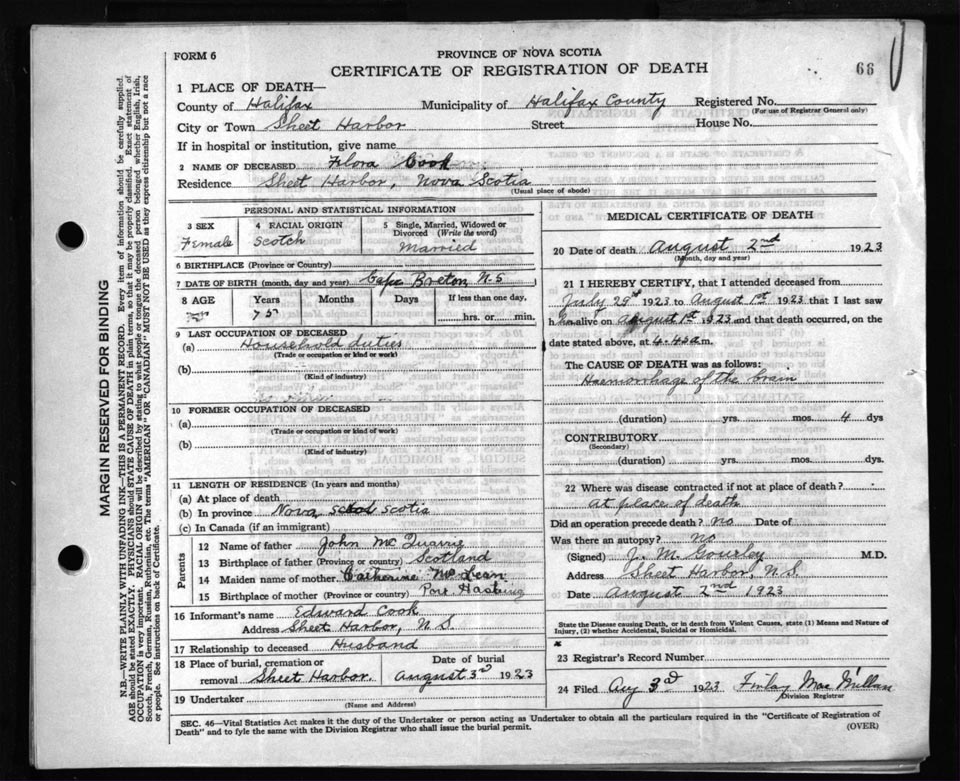 FORM 6
PROVINCE OF NOVA SCOTIA
CERTIFICATE OF REGISTRATION OF DEATH
66
1 PLACE OF DEATH—
County of Halifax Municipality of Halifax County Registered No.
(For use of Registrar General only)
City or Town Sheet Harbor Street House No.
If in hospital or institution, give name
2 NAME OF DECEASED Flora Cook
Residence Sheet Harbor, Nova Scotia
(Usual place of abode)
PERSONAL AND STATISTICAL INFORMATION
3 SEX 4 RACIAL ORIGIN 5 Single, Married, Widowed or Divorced (Write the word)
Female Scotch Married
6 BIRTHPLACE (Province or Country)
7 DATE OF BIRTH (month, day and year) Cape Breton N.S
8 AGE Years Months Days If less than one day,
75 hrs. or min.
9 LAST OCCUPATION OF DECEASED
(a) Household duties
(Trade or occupation or kind of work)
(b)
(Kind of industry)
10 FORMER OCCUPATION OF DECEASED
(a)
(Trade or occupation or kind of work)
(b)
(Kind of industry)
11 LENGTH OF RESIDENCE (In years and months)
(a) At place of death
(b) In province Nova Scotia
(c) In Canada (if an immigrant)
Parents
12 Name of father John McQuarrie
13 Birthplace of father (Province or country) Scotland
14 Maiden name of mother Catherine McLean
15 Birthplace of mother (Province or country) Port Hasting
16 Informant's name Edward Cook
Address Sheet Harbor, N.S.
17 Relationship to deceased Husband
18 Place of burial, cremation or removal Sheet Harbor. Date of burial August 3rd 1923
19 Undertaker
(Name and Address)
MEDICAL CERTIFICATE OF DEATH
20 Date of death August 2nd 1923
(Month, day and year)
21 I HEREBY CERTIFY, that I attended deceased from
July 29th 1923 to August 1st 1923 that I last saw
h alive on August 1st 1923 and that death occurred, on the
date stated above, at 4.45 a.m.
The CAUSE OF DEATH was as follows:
Haemorrhage of the brain
(duration) yrs. mos. 4 dys
CONTRIBUTORY
(Secondary)
(duration) yrs. mos. dys.
22 Where was disease contracted if not at place of death?
At place of death
Did an operation precede death? no Date of
Was there an autopsy? No
(Signed) J. M. Gourley M.D.
Address Sheet Harbor, N.S.
Date August 2nd 1923
State the Disease causing Death, or in death from Violent Causes, state (1) Means and Nature of
Injury, (2) whether Accidental, Suicidal or Homicidal.
23 Registrar's Record Number
24 Filed Aug 3rd 1923 Finlay MacMillan
Division Registrar
SEC. 46—Vital Statistics Act makes it the duty of the Undertaker or person acting as Undertaker to obtain all the particulars required in the "Certificate of Registration of
Death" and to fyle the same with the Division Registrar who shall issue the burial permit.
(OVER)
MARGIN RESERVED FOR BINDING
N.B.—WRITE PLAINLY WITH UNFADING INK—THIS IS A PERMANENT RECORD. Every item of information should be carefully supplied.
AGE should be stated EXACTLY. PHYSICIANS should STATE CAUSE OF DEATH in plain terms, so that it may be properly classified. Exact statement of
OCCUPATION is very important. RACIAL ORIGIN will be described by stating to what people or tongue the deceased person belonged whether English, Irish,
Scotch, French, German, Russian, Ruthenian, etc. The terms "AMERICAN" OR "CANADIAN" MUST NOT BE USED as they express citizenship but not a race
or people. See instructions on back of Certificate.